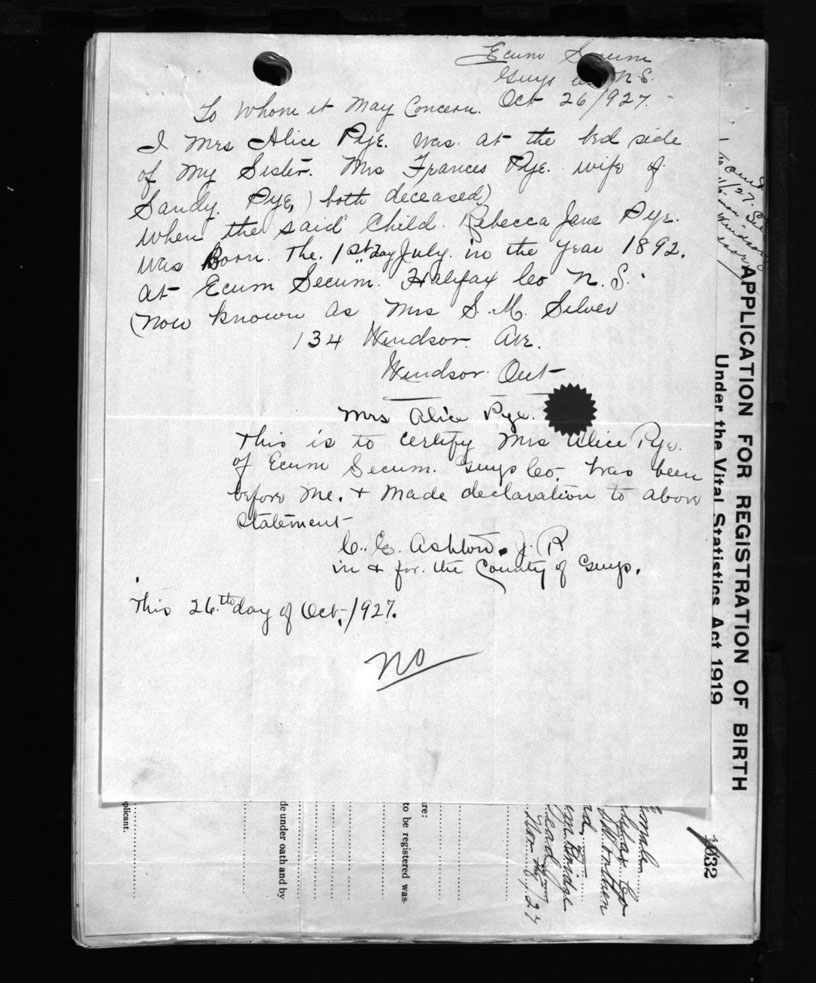 Ecum Secum
Guys Co N.S.
To Whom it May Concern. Oct 26/927.
I Mrs Alice Pye. was at the bed side
of My Sister. Mrs Frances Pye. wife of
Sandy. Pye, ) both deceased)
when the said Child. Rebecca Jane Pye.
was Born. The. 1st day July. in the year 1892.
at Ecum Secum. Halifax Co N.S.
(now known as Mrs S. M. Silver
134 Windsor Ave.
Windsor Ont
Mrs Alice Pye.
This is to certify Mrs Alice Pye.
of Ecum Secum. Guys Co. has been
before me. + Made declaration to above
Statement
C. E. Ashton. J. P
in & for. the County of Guys.
This 26th day of Oct. /927.
no
APPLICATION FOR REGISTRATION OF BIRTH
Under the Vital Statistics Act 1919
1032
plicant.
de under oath and by
to be registered was
re: